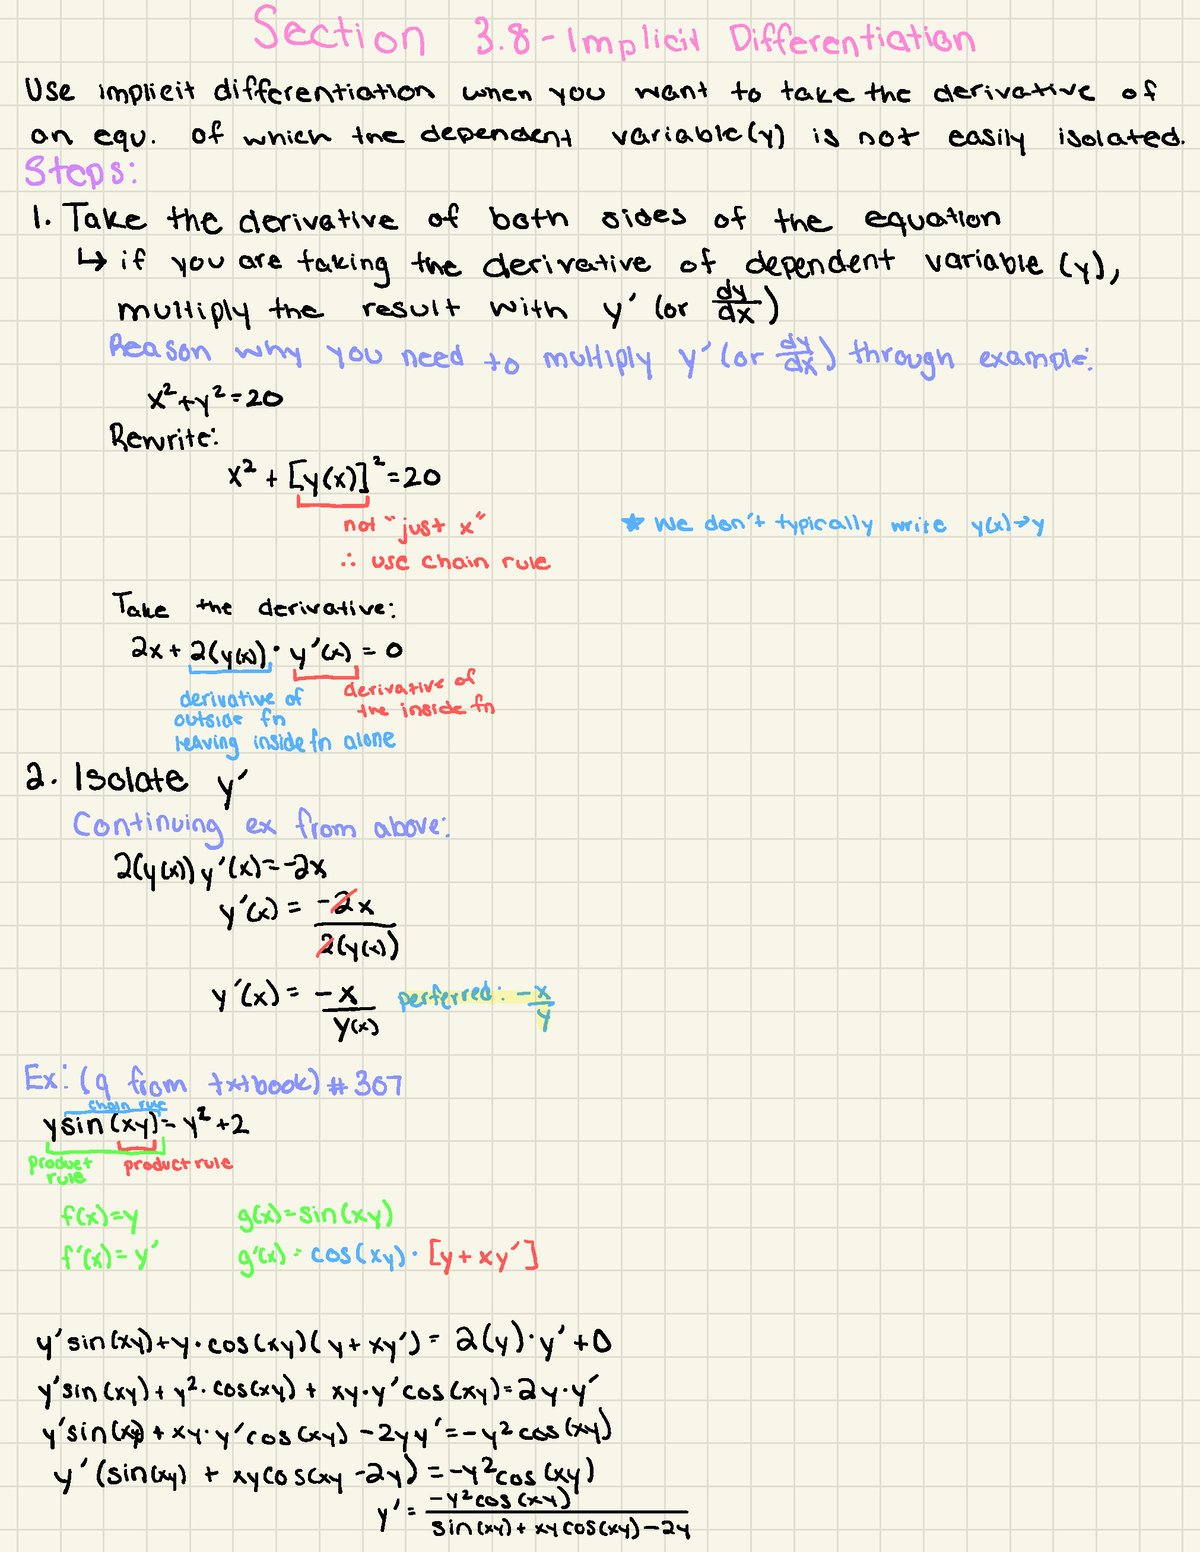 Section 3.8 - Implicit Differentiation
Use implicit differentiation when you want to take the derivative of
an equ. of which the dependent variable(y) is not easily isolated.
Steps:
1. Take the derivative of both sides of the equation
↳ if you are taking the derivative of dependent variable (y),
multiply the result with y' (or dy/dx)
Reason why you need to multiply y' (or dy/dx) through example:
x²+y²=20
Rewrite:
x² + [y(x)]²=20
not "just x"
★ we don't typically write y(x)→y
∴ use chain rule
Take the derivative:
2x + 2(y(x)) · y'(x) = 0
derivative of
outside fn
leaving inside fn alone
derivative of
the inside fn
2. Isolate y'
Continuing ex from above:
2(y(x)) y'(x)=-2x
y'(x) = -2x / 2(y(x))
y'(x) = -x / y(x) perferred: -x/y
Ex: (q from txtbook) # 307
chain rule
ysin(xy)= y²+2
product
rule
product rule
f(x)=y g(x)=sin(xy)
f'(x)= y' g'(x) = cos(xy) · [y+xy']
y'sin(xy)+y·cos(xy)(y+xy') = 2(y)·y'+0
y'sin(xy)+y²·cos(xy) + xy·y'cos(xy)=2y·y'
y'sin(xy)+xy·y'cos(xy) -2yy'=-y²cos(xy)
y'(sin(xy) + xycos(xy -2y) =-y²cos(xy)
y' = -y²cos(xy) / sin(xy)+xycos(xy)-2y